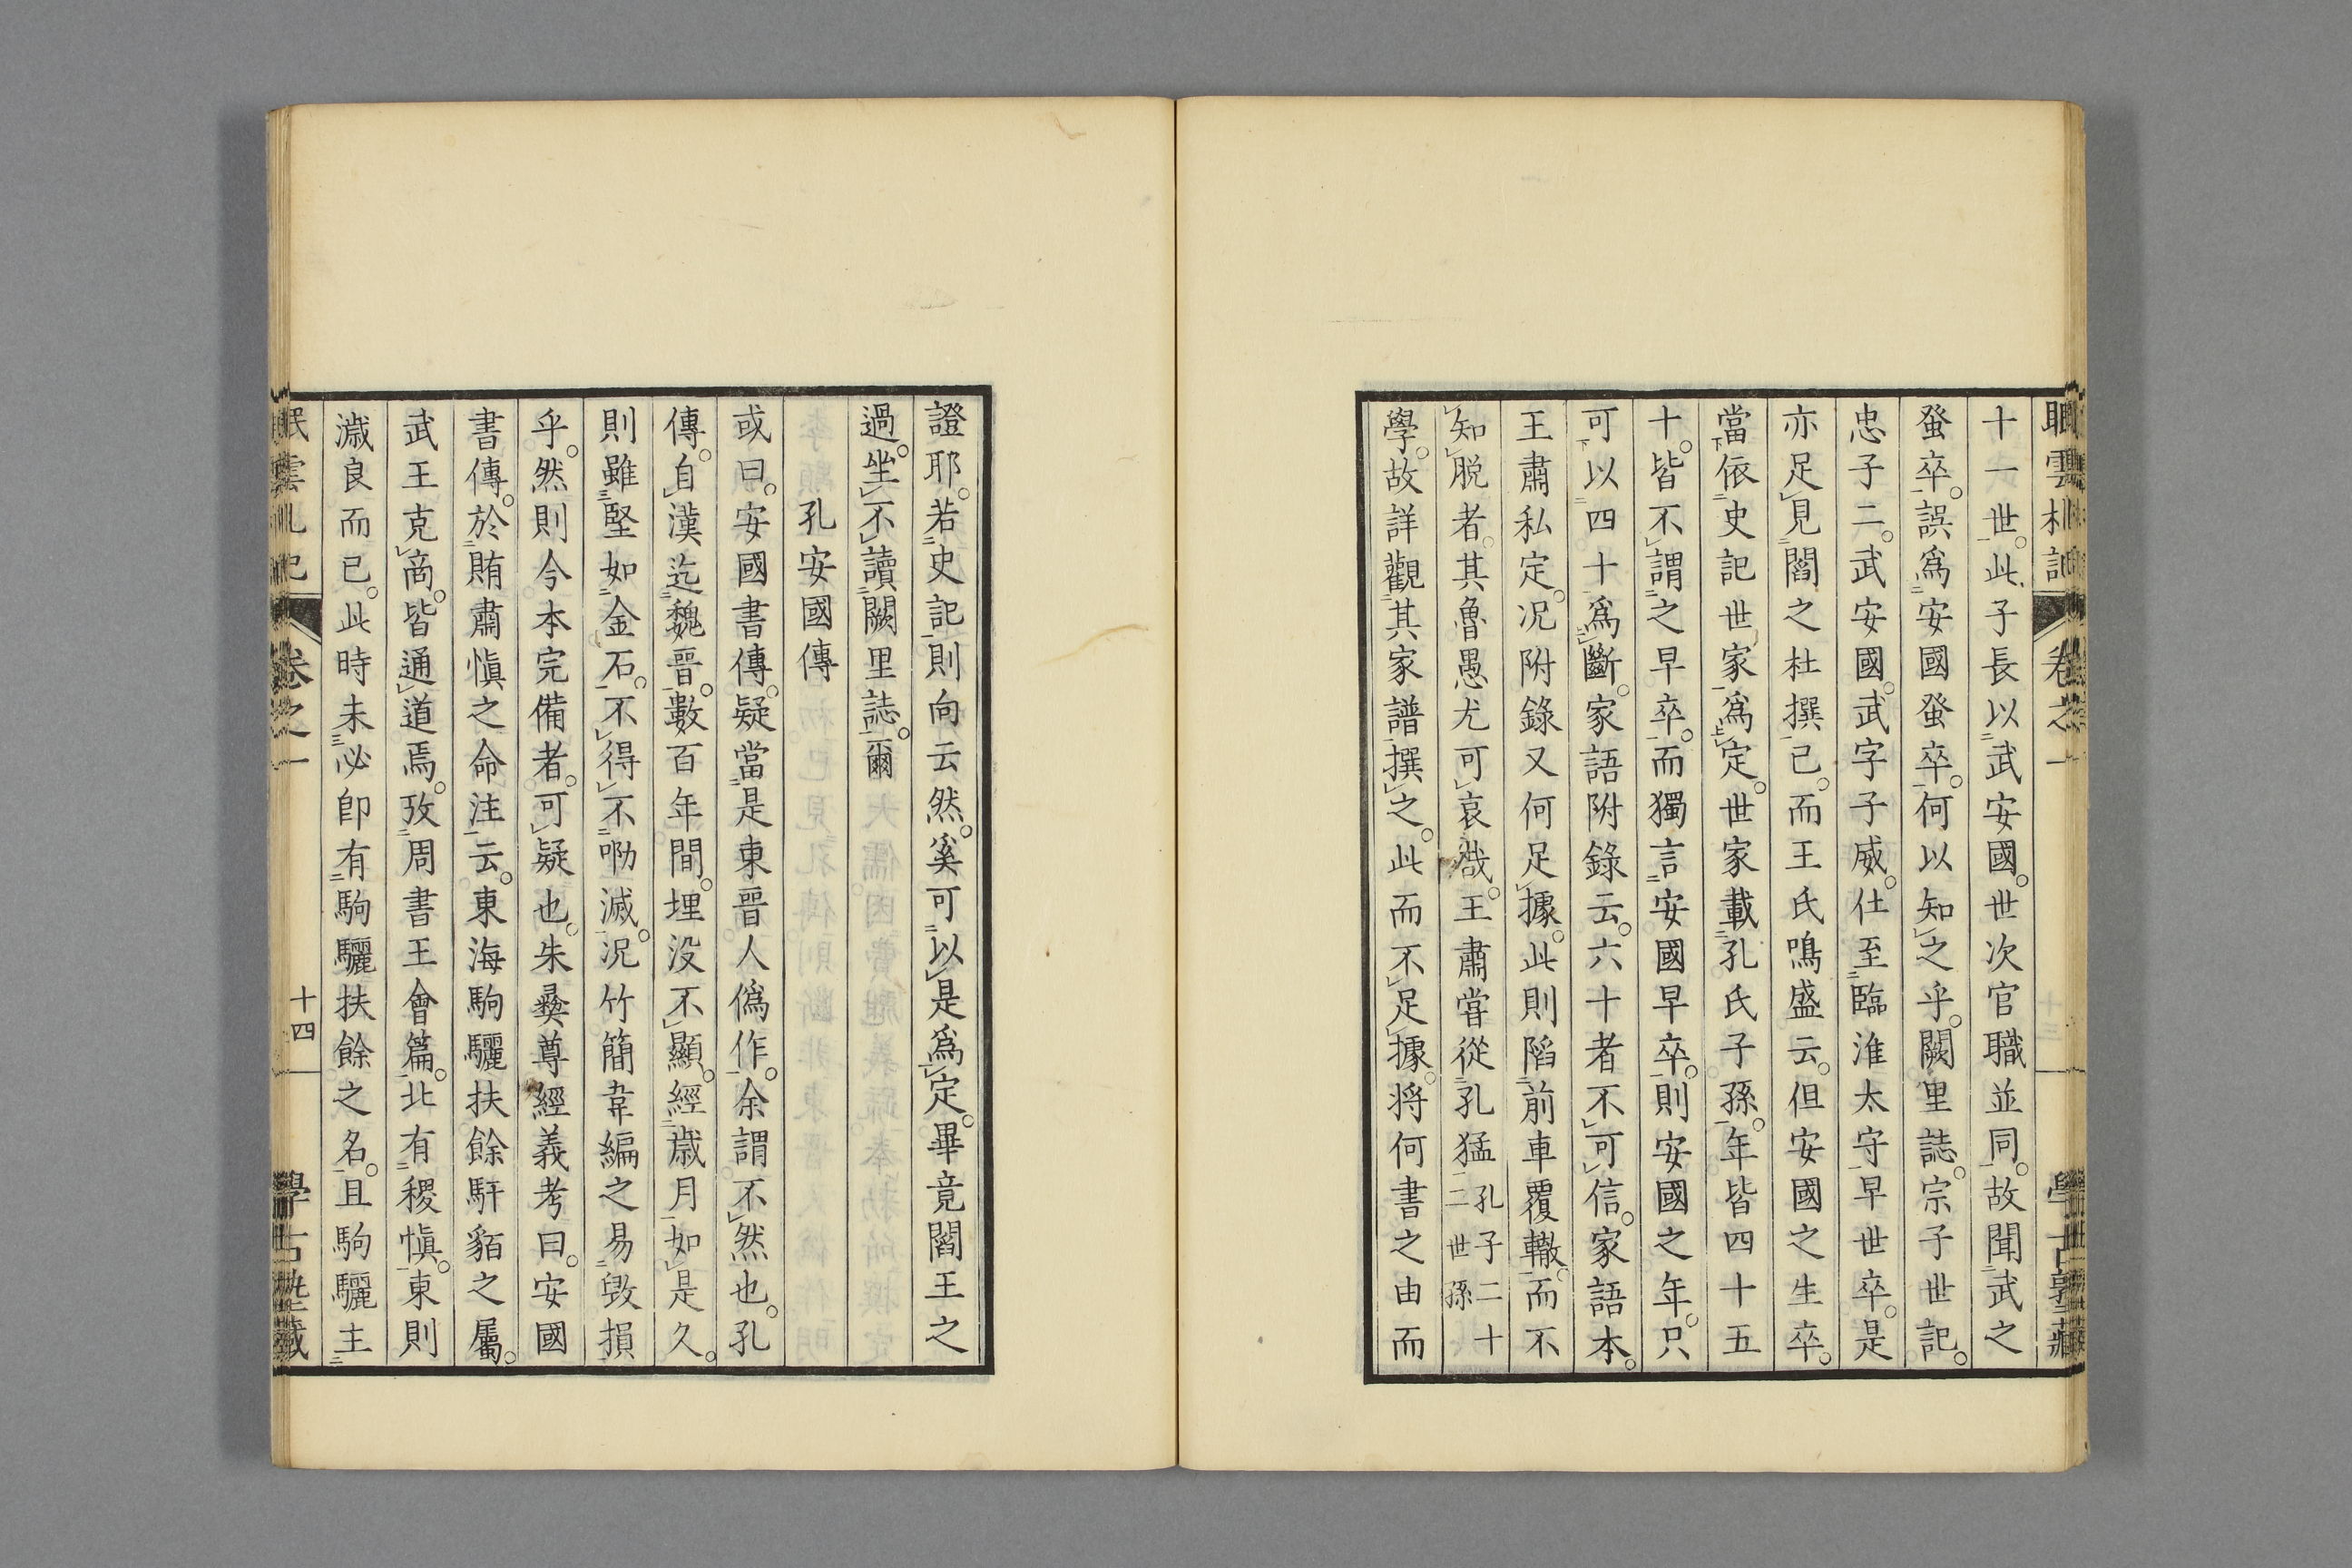 十一世。此子長以武安國。世次官職並同。故聞武之
蚤卒。誤爲安國蚤卒。何以知之乎。闕里誌。宗子世記。
忠子二。武安國。武字子威。仕至臨淮太守早世卒。是
亦足見閻之杜撰已。而王氏鳴盛云。但安國之生卒。
當依史記世家爲定。世家載孔氏子孫。年皆四十五
十。皆不謂之早卒。而獨言安國早卒。則安國之年。只
可以四十爲斷。家語附錄云。六十者不可信。家語本。
王肅私定。况附錄又何足據。此則陷前車覆轍。而不
知脱者。其魯愚尤可哀哉。王肅嘗從孔猛孔子二十二世孫
學。故詳觀其家譜撰之。此而不足據。將何書之由而
證耶。若史記則向云然。奚可以是爲定。畢竟閻王之
過。坐不讀闕里誌。爾
孔安國傳
或曰。安國書傳。疑當是東晉人僞作。余謂不然也。孔
傳。自漢迄魏晉。數百年間。埋没不顯。經歲月如是久。
則雖堅如金石。不得不泐滅。况竹簡韋編之易毀損
乎。然則今本完備者。可疑也。朱彝尊經義考曰。安國
書傳。於賄肅愼之命注云。東海駒驪扶餘馯貊之屬。
武王克商。皆通道焉。攷周書王會篇。北有稷愼。東則
濊良而已。此時未必卽有駒驪扶餘之名。且駒驪主
卷之一
十四